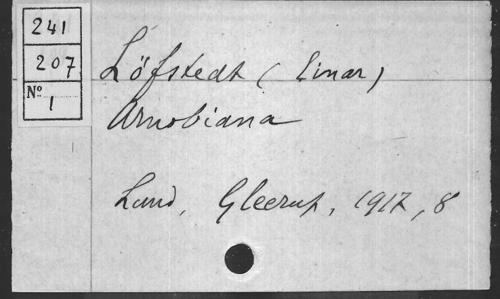 241
207
No 1
Löfstedt (Einar)
Arnobiana
Lund, Gleerup, 1917, 8